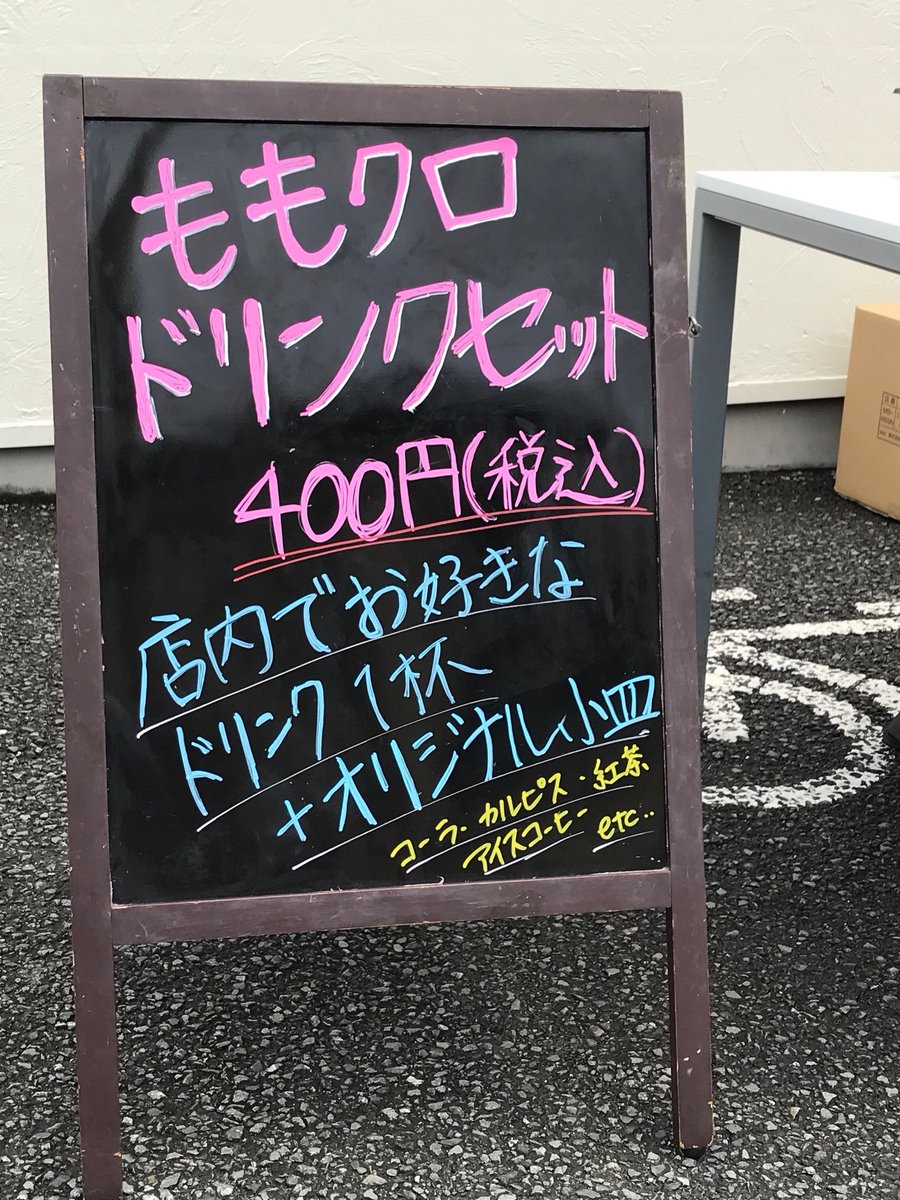 ももクロ
ドリンクセット
400円(税込)
店内でお好きな
ドリンク1杯
+オリジナル小皿
コーラ・カルピス・紅茶
アイスコーヒー etc..